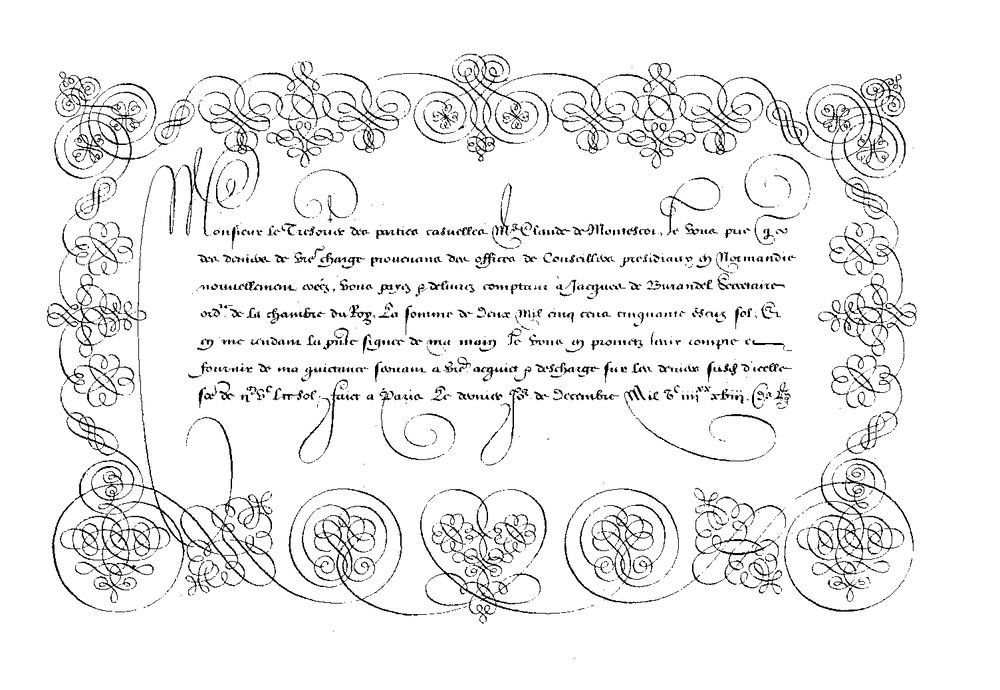 Monsieur le Tresorier des parties casuelles Mr Claude de Montescot, Je vous prie q ce
des deniers de vre charge provenans des offices de Conseillers presidiaux en Normandie
nouvellement creez, vous payez & delivrez comptant a Jacques de Burandel Secretaire
ordre de la chambre du Roy, La somme de Deux Mil cinq cens cinquante escuz sol. Et
en me rendant la pnte signee de ma main Je vous en prometz tenir compte et
fournir de ma quictance servant a vre acquict & descharge sur les deniers susd d'icelle
soe de Fait a Paris Le dernier Jor de Decembre Mil Vc iiiixx xviii.